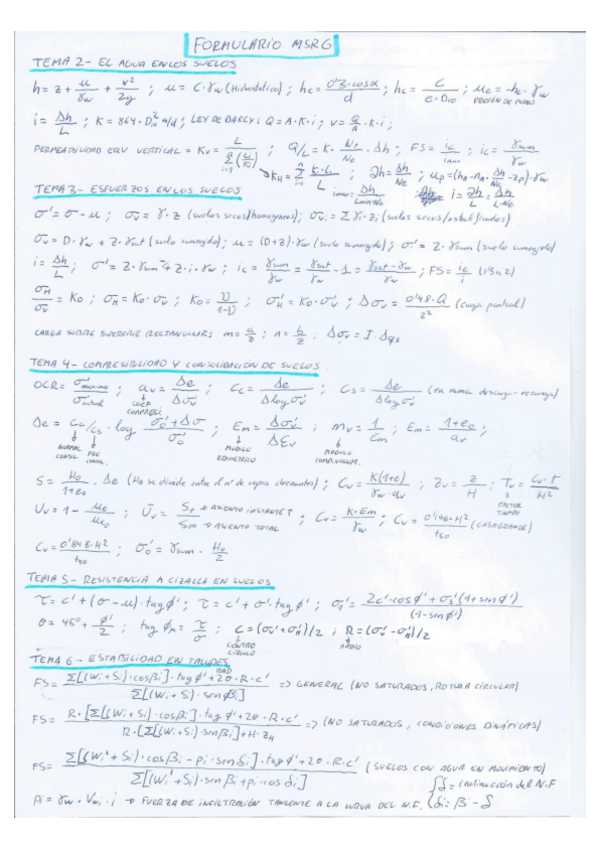 FORMULARIO MSRG
TEMA 2 - EL AGUA EN LOS SUELOS
h = z + u/γw + v²/2g ; u = C·γw (Hidrostática) ; hc = 0'3·cosα/d ; hc = C/e·D10 ; uc = -hc·γw PRESIÓN DE POROS
i = Δh/L ; K = 864·D10² m/d ; LEY DE DARCY: Q = A·K·i ; v = Q/A = K·i ;
PERMEABILIDAD EQUIV VERTICAL = Kv = L/Σ(Li/Ki) ; Q/L = K·Nf/Nc·Δh ; FS = ic/imax ; ic = γsum/γw
KH = Σ K·Li/L ; ∂h = Δh/Nc ; up = (hA - nA·Δh/Nc - zp)·γw
imax = Δh/Lmin·Nc i = ∂h/L = Δh/L·Nc
TEMA 3 - ESFUERZOS EN LOS SUELOS
σ' = σ - u ; σv = γ·z (suelos secos/homogeneos) ; σv = Σγi·zi (suelos secos/estratificados)
σv = D·γw + z·γsat (suelo sumergido) ; u = (D+z)·γw (suelo sumergido) ; σ' = z·γsum (suelo sumergido)
i = Δh/L ; σ' = z·γsum ± z·i·γw ; ic = γsum/γw = γsat/γw - 1 = γsat-γw/γw ; FS = ic/i (1'5 a 2)
σH/σv = K0 ; σH = K0·σv ; K0 = ν/1-ν ; σ'H = K0·σ'v ; Δσv = 0'48·Q/z² (Carga puntual)
CARGA SOBRE SUPERFICIE RECTANGULAR: m = a/z ; n = b/z ; Δσv = I·Δqs
TEMA 4 - COMPRESIBILIDAD Y CONSOLIDACIÓN DE SUELOS
OCR = σ'maxima/σ'actual ; av = Δe/Δσ'v ; Cc = Δe/Δlogσ'v ; Cs = Δe/Δlogσ'v (en rama descarga-recarga)
COEF COMPRESI.
Δe = Cc/Cs·log σ'0+Δσ/σ'0 ; Em = Δσ'v/ΔEv ; mv = 1/Em ; Em = 1+e0/av ;
NORMAL CONSOL. PRE CONSOL. MODULO EDOMETRICO MODULO COMP. VOLUM.
S = H0/1+e0·Δe (H0 se divide entre el nº de capas drenantes) ; Cv = K(1+e)/γw·av ; Zv = z/H ; Tv = Cv·t/H²
FACTOR TIEMPO
Uv = 1 - ue/ue0 ; Ūv = St → ASIENTO INSTANTE t/S∞ → ASIENTO TOTAL ; Cv = K·Em/γw ; Cv = 0'196·H²/t50 (CASAGRANDE)
Cv = 0'848·H²/t90 ; σ'0 = γsum·H0/2
TEMA 5 - RESISTENCIA A CIZALLA EN SUELOS
τ = c' + (σ - u)·tagφ' ; τ = c' + σ'·tagφ' ; σ'1 = 2c'·cosφ' + σ'3(1+senφ')/(1-senφ')
θ = 45° + φ'/2 ; tag φm = τ/σ ; C = (σv'+σH')/2 ; R = (σv'-σH')/2
CENTRO CÍRCULO RADIO
TEMA 6 - ESTABILIDAD EN TALUDES
RAD
FS = Σ[(Wi+Si)·cosβi]·tagφ'+2θ·R·c'/Σ[(Wi+Si)·senβi] => GENERAL (NO SATURADOS, ROTURA CIRCULAR)
FS = R·[Σ[(Wi+Si)·cosβi]·tagφ'+2θ·R·c']/R·[Σ[(Wi+Si)·senβi]+H·zH => (NO SATURADOS, CONDICIONES DINÁMICAS)
FS = Σ[(Wi'+Si)·cosβi - pi·senδi]·tagφ'+2θ·R·c'/Σ[(Wi'+Si)·senβi+pi·cosδi] (SUELOS CON AGUA EN MOVIMIENTO)
pi = γw·Vwi·i → FUERZA DE INFILTRACIÓN TANGENTE A LA CURVA DEL N.F. { δ = Inclinación del N.F δi = βi - δ